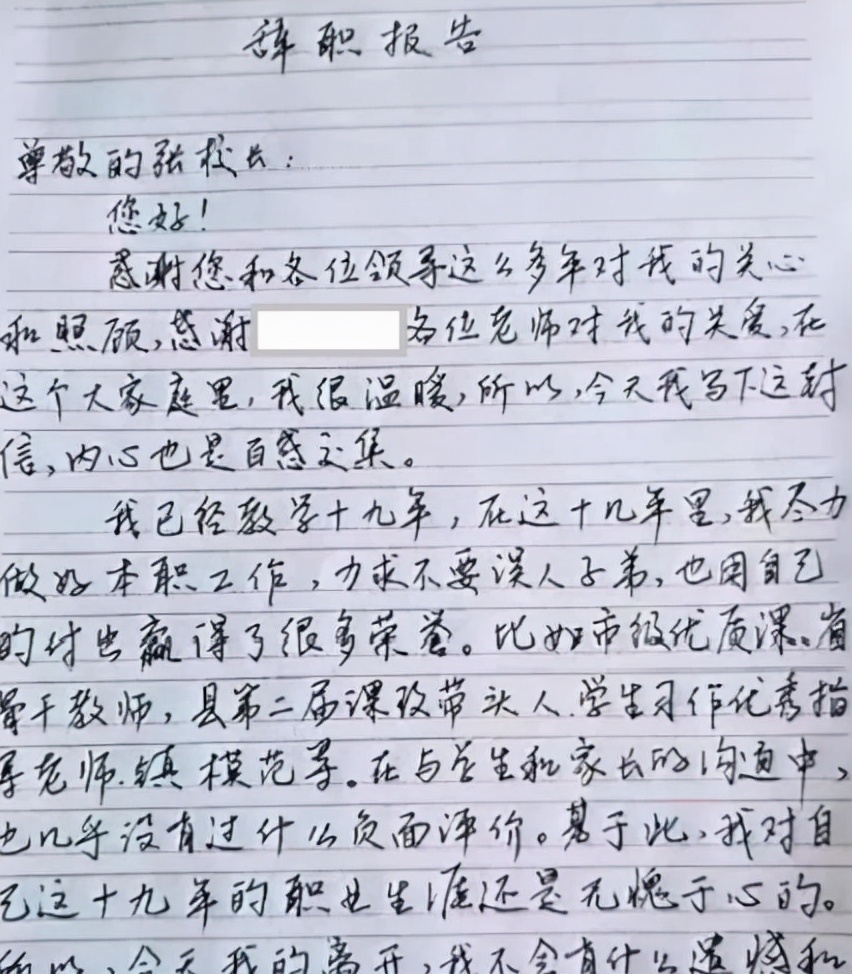 辞职报告
尊敬的张校长：
您好！
感谢您和各位领导这么多年对我的关心
和照顾，感谢 各位老师对我的关爱，在
这个大家庭里，我很温暖，所以，今天我写下这封
信，内心也是百感交集。
我已经教学十九年，在这十几年里，我尽力
做好本职工作，力求不要误人子弟，也用自己
的付出赢得了很多荣誉。比如市级优质课、省
骨干教师，县第二届课改带头人、学生习作优秀指
导老师、镇模范等。在与学生和家长的沟通中，
也几乎没有过什么负面评价。基于此，我对自
己这十九年的职业生涯还是无愧于心的。
所以，今天我的离开，我不会有什么遗憾和